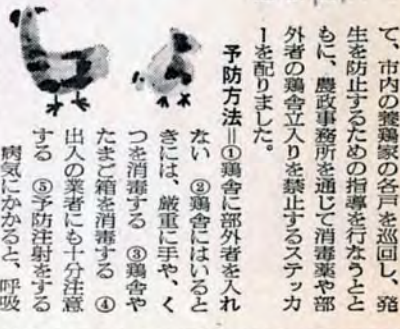 て、市内の養鶏家の各戸を巡回し、発
生を防止するための指導を行なうとと
もに、農政事務所を通じて消毒薬や部
外者の鶏舎立入りを禁止するステッカ
ーを配りました。
予防方法＝①鶏舎に部外者を入れ
ない　②鶏舎にはいると
きには、厳重に手や、く
つを消毒する　③鶏舎や
たまご箱を消毒する　④
出入の業者にも十分注意
する　⑤予防注射をする
病気にかかると、呼吸